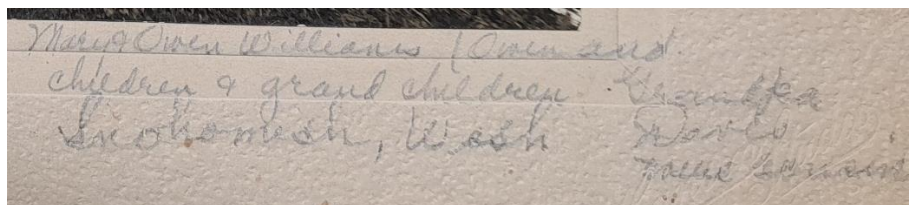 Mary & Owen Williams / Owen and
children & grand children Grandpa
Snohomish, Wash Davis